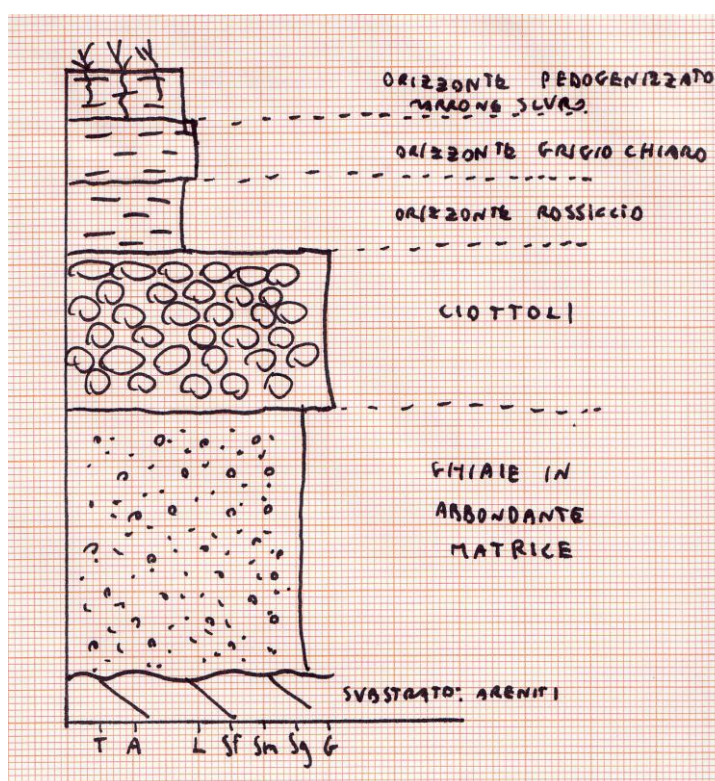 ORIZZONTE PEDOGENIZZATO
MARRONE SCURO.
ORIZZONTE GRIGIO CHIARO
ORIZZONTE ROSSICCIO
CIOTTOLI
GHIAIE IN
ABBONDANTE
MATRICE
SUBSTRATO: ARENITI
T A L Sf Sm Sg G